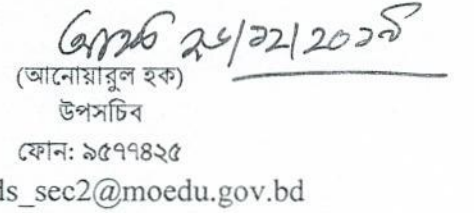 ২৬/১২/২০১৯
(আনোয়ারুল হক)
উপসচিব
ফোন: ৯৫৭৭৪২৫
ds_sec2@moedu.gov.bd